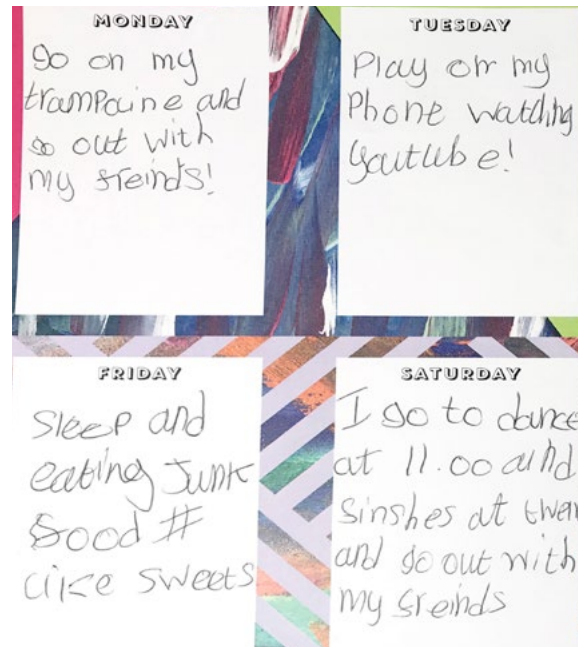 MONDAY
go on my
trampaine and
go out with
my freinds!
TUESDAY
Play on my
Phone watching
youtube!
FRIDAY
Sleep and
eating Junk
food #
like sweets
SATURDAY
I go to dance
at 11.00 and
finshes at
and go out with
my freinds